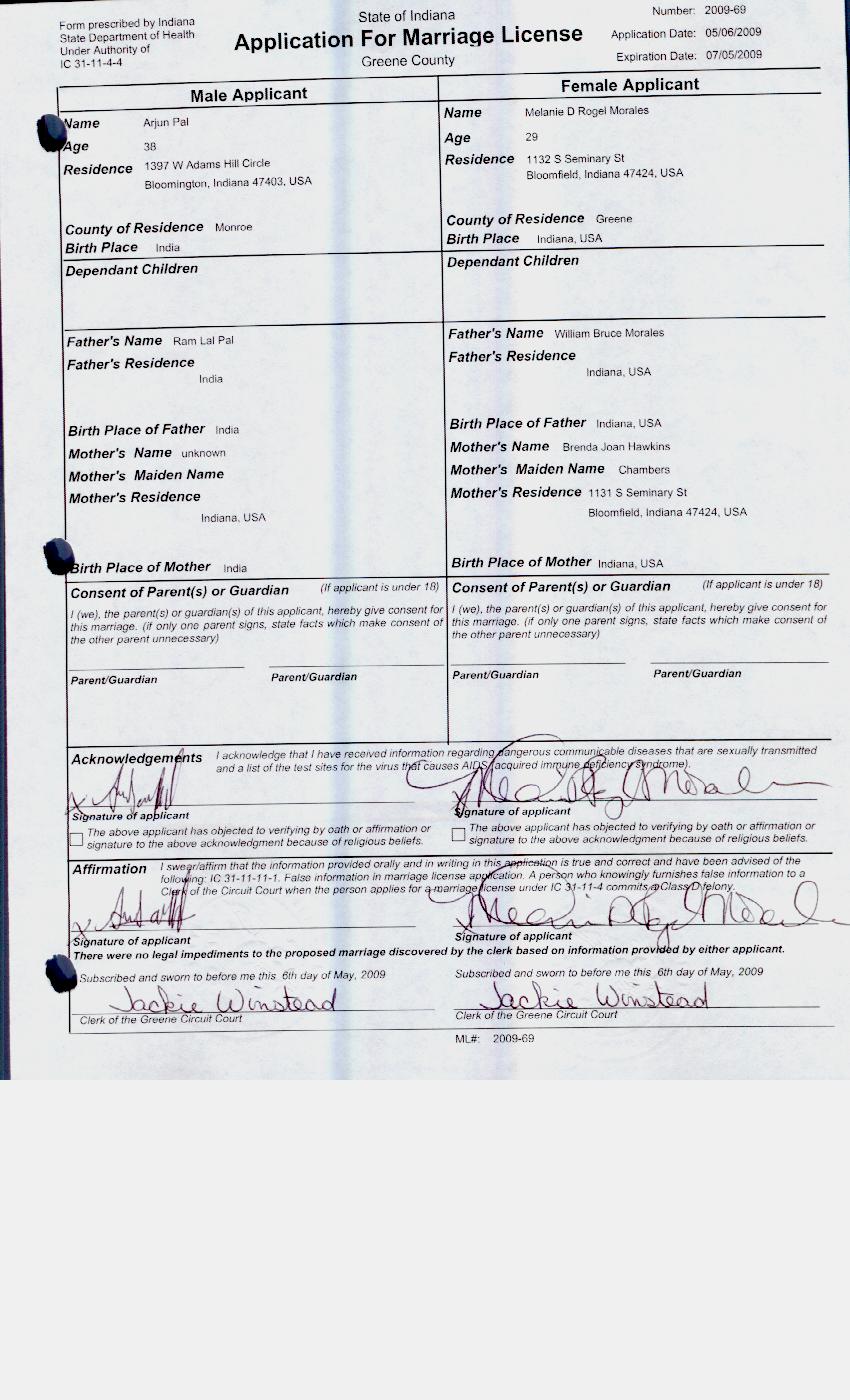 Form prescribed by Indiana
State Department of Health
Under Authority of
IC 31-11-4-4
State of Indiana
Application For Marriage License
Greene County
Number: 2009-69
Application Date: 05/06/2009
Expiration Date: 07/05/2009
Male Applicant
Name Arjun Pal
Age 38
Residence 1397 W Adams Hill Circle
Bloomington, Indiana 47403, USA
County of Residence Monroe
Birth Place India
Dependant Children
Father's Name Ram Lal Pal
Father's Residence
India
Birth Place of Father India
Mother's Name unknown
Mother's Maiden Name
Mother's Residence
Indiana, USA
Birth Place of Mother India
Consent of Parent(s) or Guardian (If applicant is under 18)
I (we), the parent(s) or guardian(s) of this applicant, hereby give consent for
this marriage. (if only one parent signs, state facts which make consent of
the other parent unnecessary)
Parent/Guardian Parent/Guardian
Female Applicant
Name Melanie D Rogel Morales
Age 29
Residence 1132 S Seminary St
Bloomfield, Indiana 47424, USA
County of Residence Greene
Birth Place Indiana, USA
Dependant Children
Father's Name William Bruce Morales
Father's Residence
Indiana, USA
Birth Place of Father Indiana, USA
Mother's Name Brenda Joan Hawkins
Mother's Maiden Name Chambers
Mother's Residence 1131 S Seminary St
Bloomfield, Indiana 47424, USA
Birth Place of Mother Indiana, USA
Consent of Parent(s) or Guardian (If applicant is under 18)
I (we), the parent(s) or guardian(s) of this applicant, hereby give consent for
this marriage. (if only one parent signs, state facts which make consent of
the other parent unnecessary)
Parent/Guardian Parent/Guardian
Acknowledgements I acknowledge that I have received information regarding dangerous communicable diseases that are sexually transmitted
and a list of the test sites for the virus that causes AIDS (acquired immune deficiency syndrome).
x
x
Signature of applicant
Signature of applicant
The above applicant has objected to verifying by oath or affirmation or
signature to the above acknowledgment because of religious beliefs.
The above applicant has objected to verifying by oath or affirmation or
signature to the above acknowledgment because of religious beliefs.
Affirmation I swear/affirm that the information provided orally and in writing in this application is true and correct and have been advised of the
following: IC 31-11-11-1. False information in marriage license application. A person who knowingly furnishes false information to a
Clerk of the Circuit Court when the person applies for a marriage license under IC 31-11-4 commits a Class D felony.
x
x
Signature of applicant
Signature of applicant
There were no legal impediments to the proposed marriage discovered by the clerk based on information provided by either applicant.
Subscribed and sworn to before me this 6th day of May, 2009
Jackie Winstead
Clerk of the Greene Circuit Court
Subscribed and sworn to before me this 6th day of May, 2009
Jackie Winstead
Clerk of the Greene Circuit Court
ML#: 2009-69